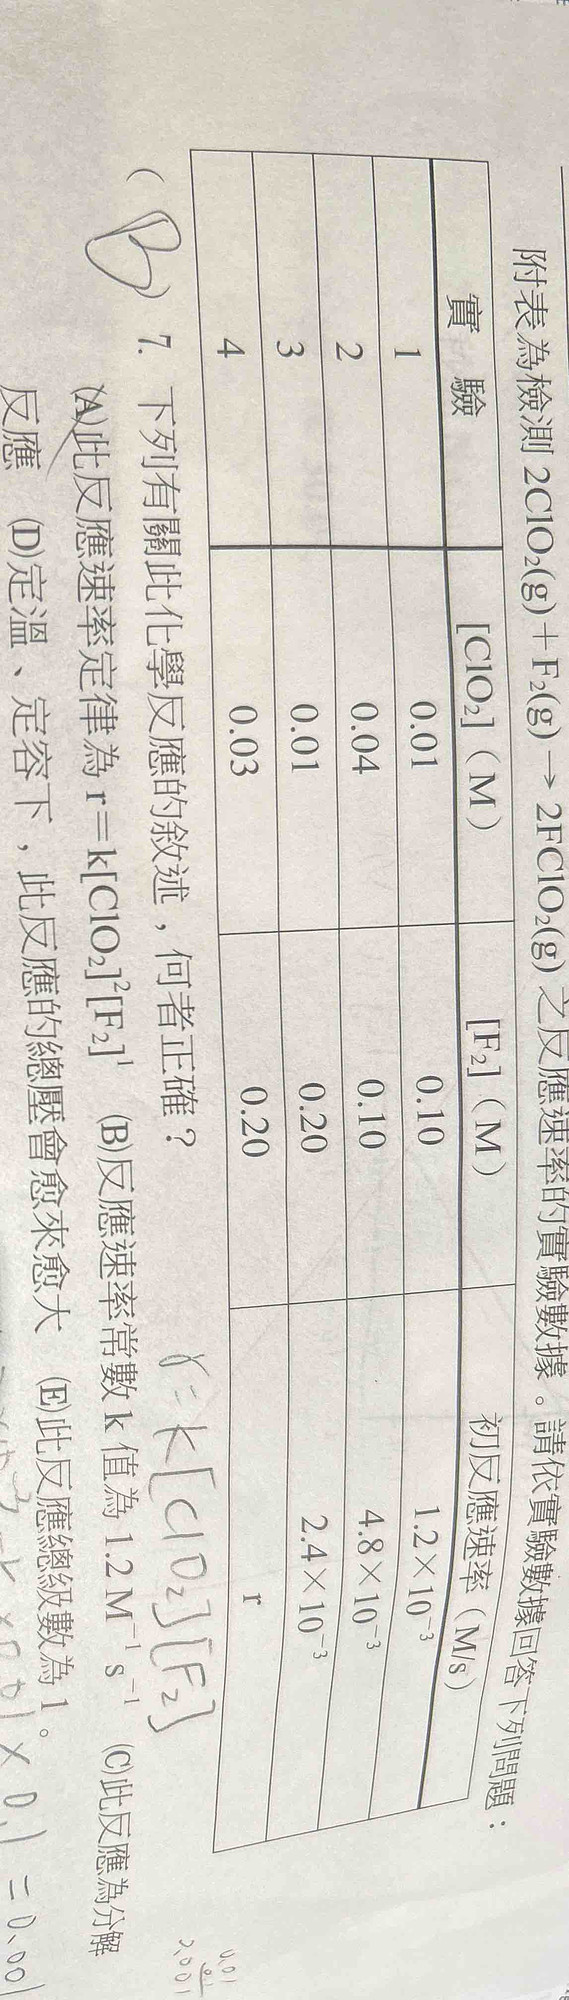 附表為檢測 2ClO₂(g)＋F₂(g) → 2FClO₂(g) 之反應速率的實驗數據。請依實驗數據回答下列問題：
實 驗 [ClO₂]（M） [F₂]（M） 初反應速率（M/s）
1 0.01 0.10 1.2×10⁻³
2 0.04 0.10 4.8×10⁻³
3 0.01 0.20 2.4×10⁻³
4 0.03 0.20 r
( B ) 7. 下列有關此化學反應的敘述，何者正確？
r = k[ClO₂][F₂]
(A)此反應速率定律為 r＝k[ClO₂]²[F₂]¹ (B)反應速率常數 k 值為 1.2 M⁻¹ s⁻¹ (C)此反應為分解
反應 (D)定溫、定容下，此反應的總壓會愈來愈大 (E)此反應總級數為 1。
× 0.1 = 0.001
0.01
0.1
0.001